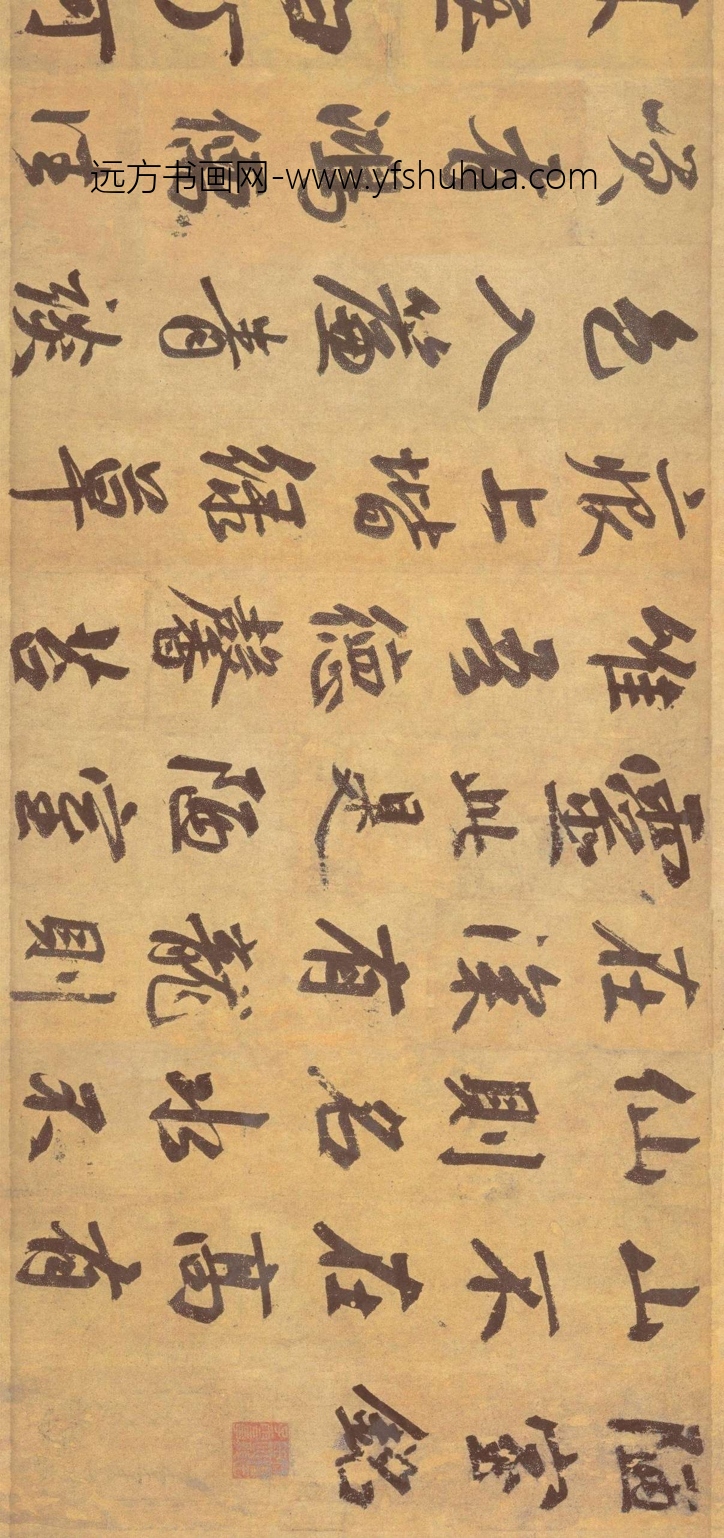 陋室銘
山不在高有
仙則名水不
在深有龍則
靈此是陋室
唯吾德馨苔
痕上階綠草
色入簾青談
笑有鴻儒往
白丁可
远方书画网-www.yfshuhua.com